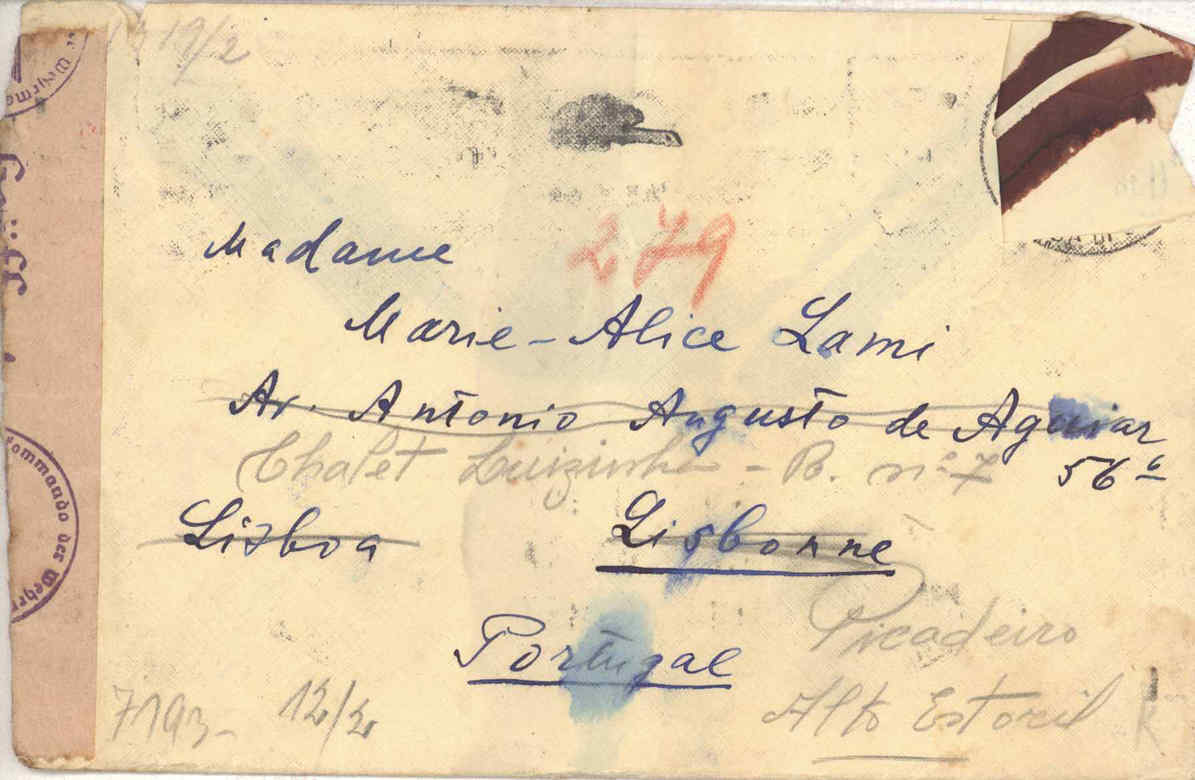 19/2
Madame
279
Marie-Alice Lami
Av. Antonio Augusto de Aguiar
Chalet Luizinha - R. nº 7
56
Lisboa
Lisbonne
Portugal
Picadeiro
Alto Estoril
7193-
12/2
ommando des Wehrm